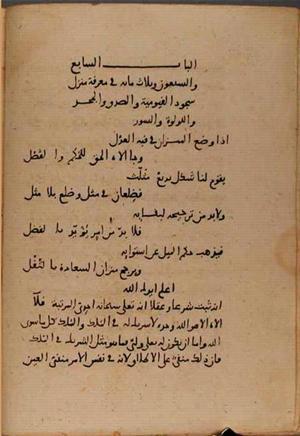 الباب السابع
والسبعون وثلاثمائة في معرفة منزل
سجود القيومية والصدق والمجد
واللؤلؤة والسور
اذا وضع الميزان في قبة العدل
وجا الاله الحق للحكم والفصل
يقوم لنا شكل بديع مثلث
فضلعان في مثل وضلع بلا مثل
ولا بد من ترجيحه لبقائه
فلا بد من امر يؤيد بالفضل
فيذهب حكم الميل عن استوائه
ويرجح ميزان السعادة بالثقل
اعلم ايدك الله
انه ثبت شرعا وعقلا انه تعالى سبحانه احدي المرتبة فلا
اله الا هو الله وحده لا شريك له في الملك والملك كل ما سوى
الله واما ان يكون له تعالى ولي فما هو مثل الشريك في الملك
فان ذلك منفي على الاطلاق لانه في نفس الامر منفي العين